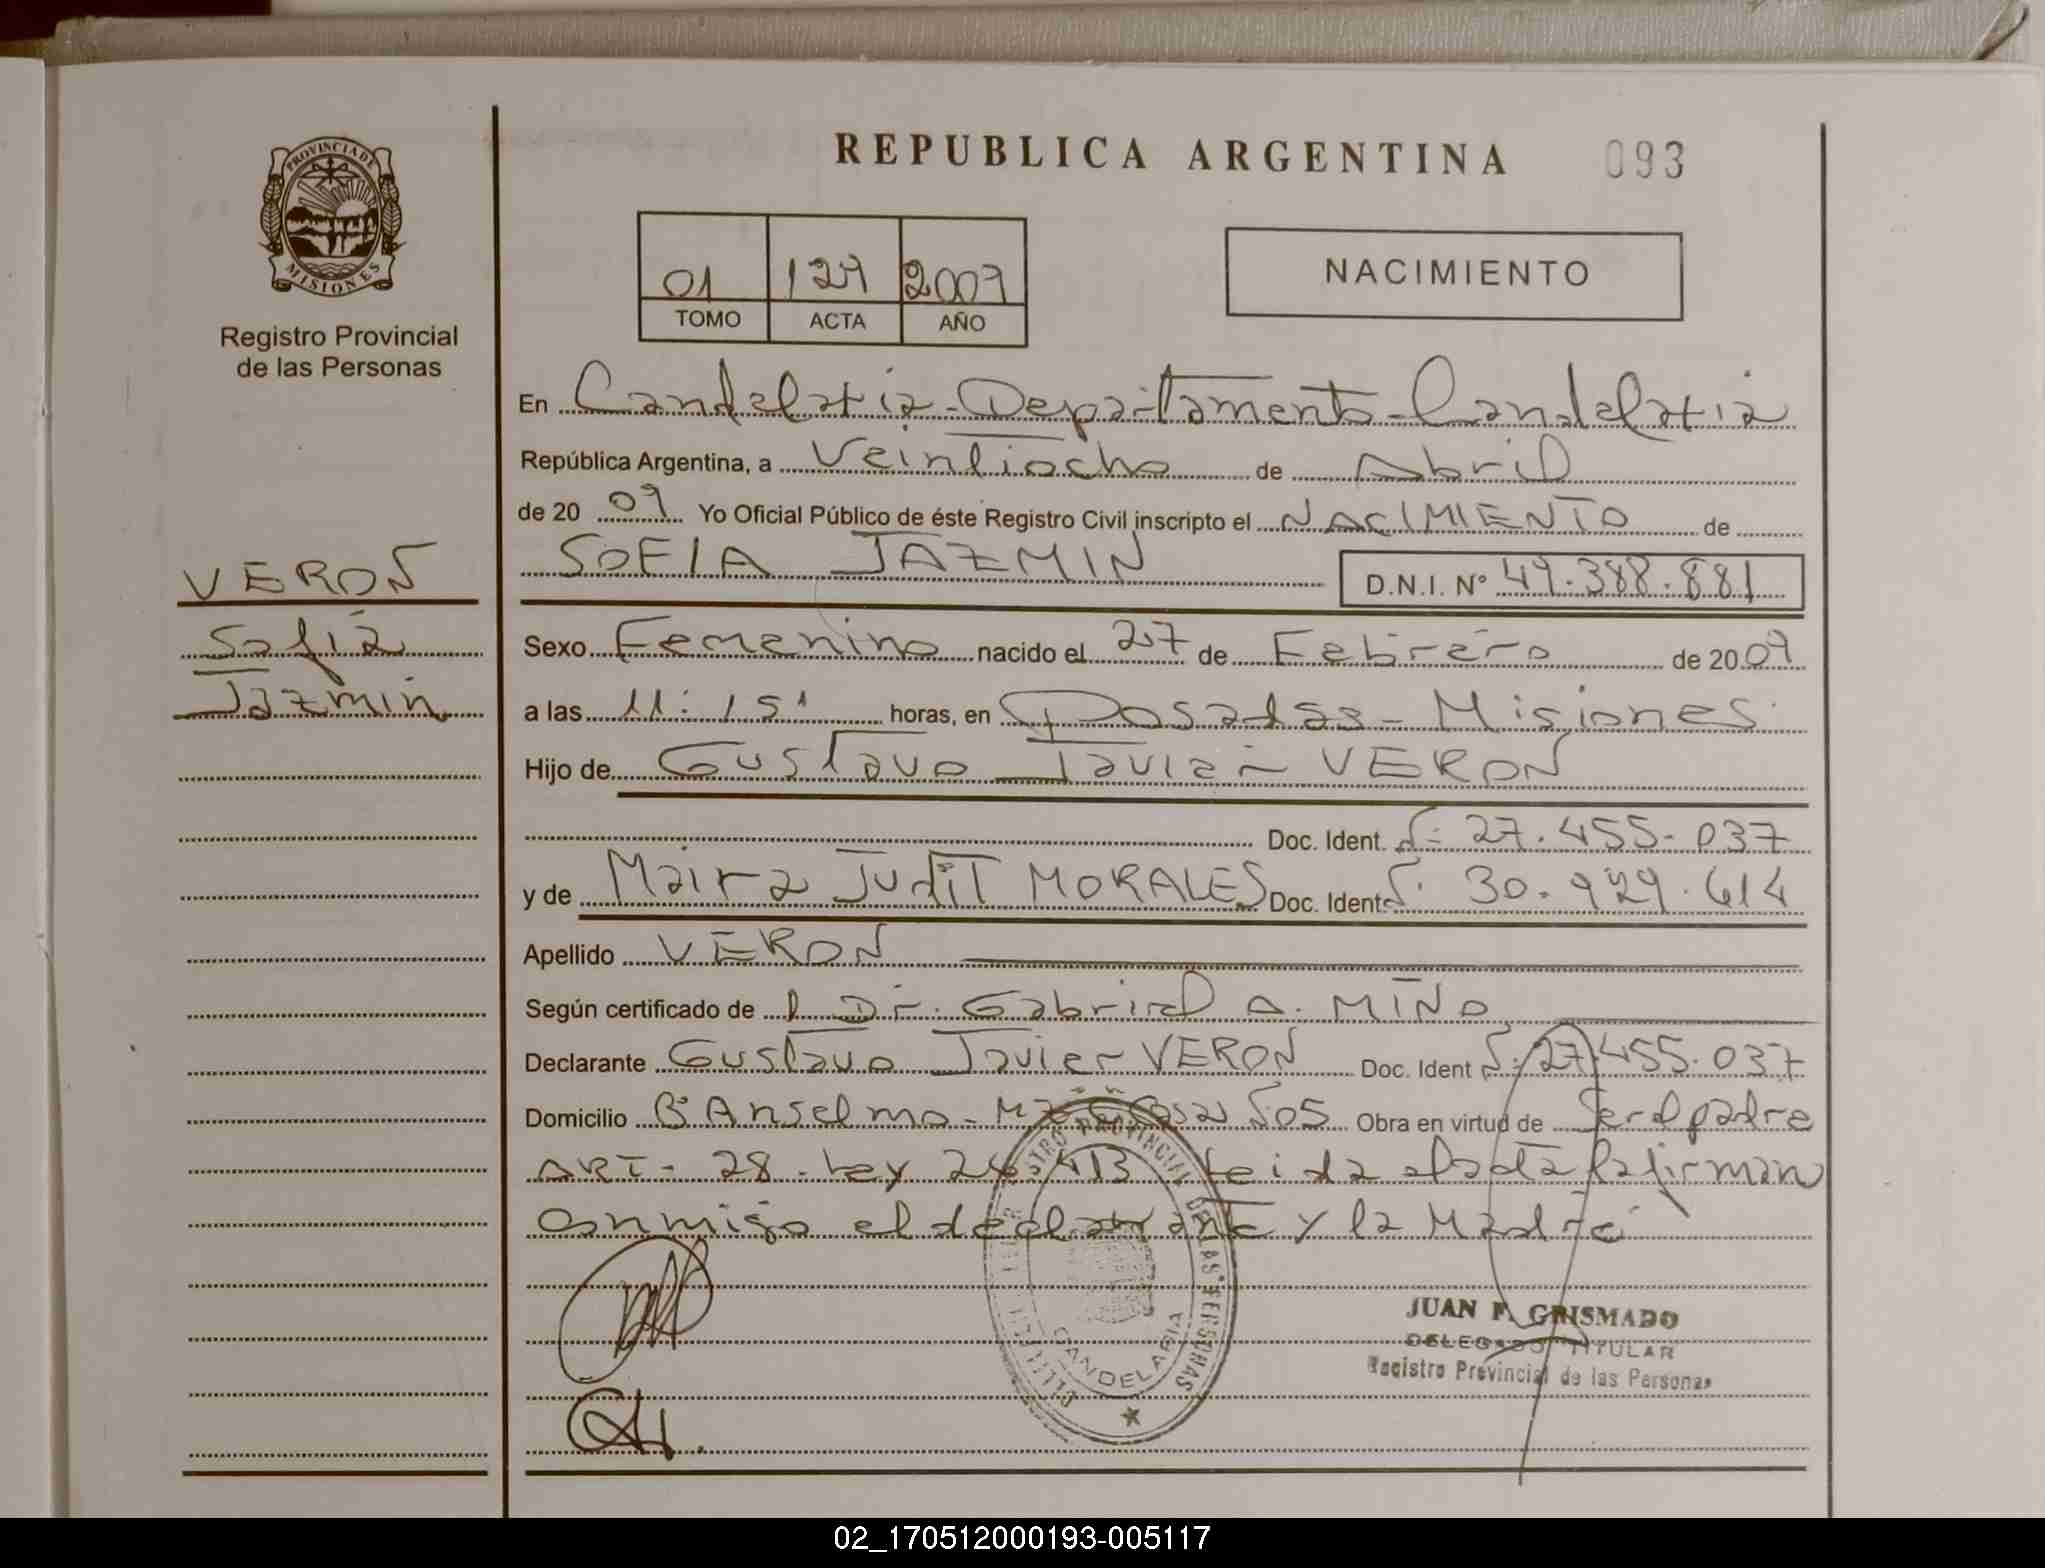 REPUBLICA ARGENTINA 093
PROVINCIA DE
MISIONES
Registro Provincial
de las Personas
01 129 2009
TOMO ACTA AÑO
NACIMIENTO
En Candelaria - Departamento Candelaria
República Argentina, a Veintiocho de Abril
de 20 09 Yo Oficial Público de éste Registro Civil inscripto el NACIMIENTO de
SOFIA JAZMIN D.N.I. Nº 49.388.881
VERON
Sofia
Jazmin
Sexo Femenino nacido el 27 de Febrero de 20 09
a las 11:15' horas, en Posadas - Misiones.
Hijo de Gustavo Javier VERON
Doc. Ident. 27.455.037
y de Maira Judit MORALES Doc. Ident. 30.929.614
Apellido VERON
Según certificado de Dr. Gabriel A. MIÑO
Declarante Gustavo Javier VERON Doc. Ident 27.455.037
Domicilio Bº Anselmo - Mz Casa Obra en virtud de Ser el padre
ART - 28 - Ley 26.413 Leida el acta la firman
conmigo el declarante y la Madre
REGISTRO PROVINCIAL DE LAS PERSONAS
CANDELARIA
JUAN F. GRISMADO
DELEGADO TITULAR
Registro Provincial de las Personas
02_170512000193-005117